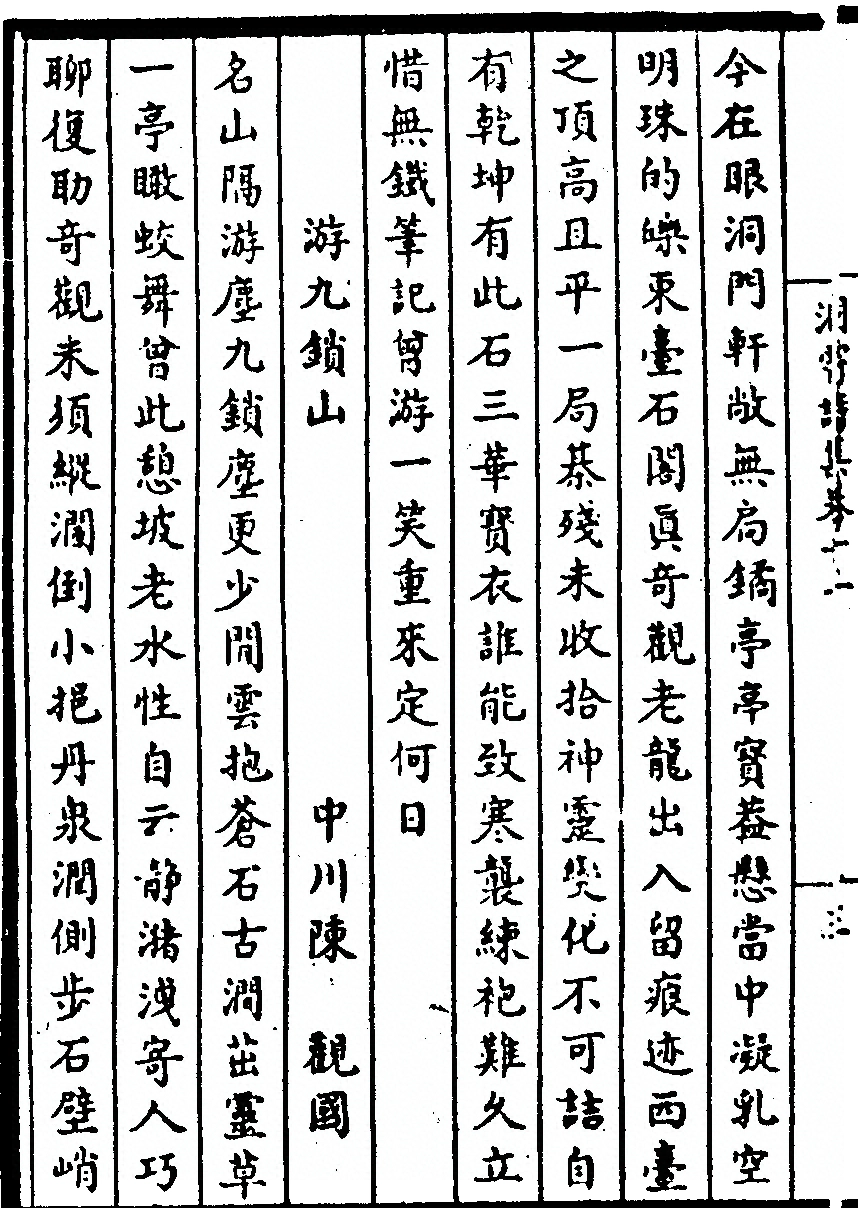 洞霄詩集卷十一
三
今在眼洞門軒敞無扃鐍亭亭寳葢懸當中凝乳空
明珠的皪東臺石閣眞奇觀老龍出入留痕迹西臺
之頂高且平一局棊殘未收拾神靈變化不可詰自
有乾坤有此石三華寳衣誰能致寒襲練袍難久立
惜無鐵筆記曾游一笑重來定何日
游九鎖山 中川陳 觀國
名山隔游塵九鎖塵更少閒雲抱蒼石古澗茁靈草
一亭瞰蛟舞曾此憩坡老水性自云靜瀦洩寄人巧
聊復助奇觀未須縱瀾倒小挹丹泉潤側步石壁峭